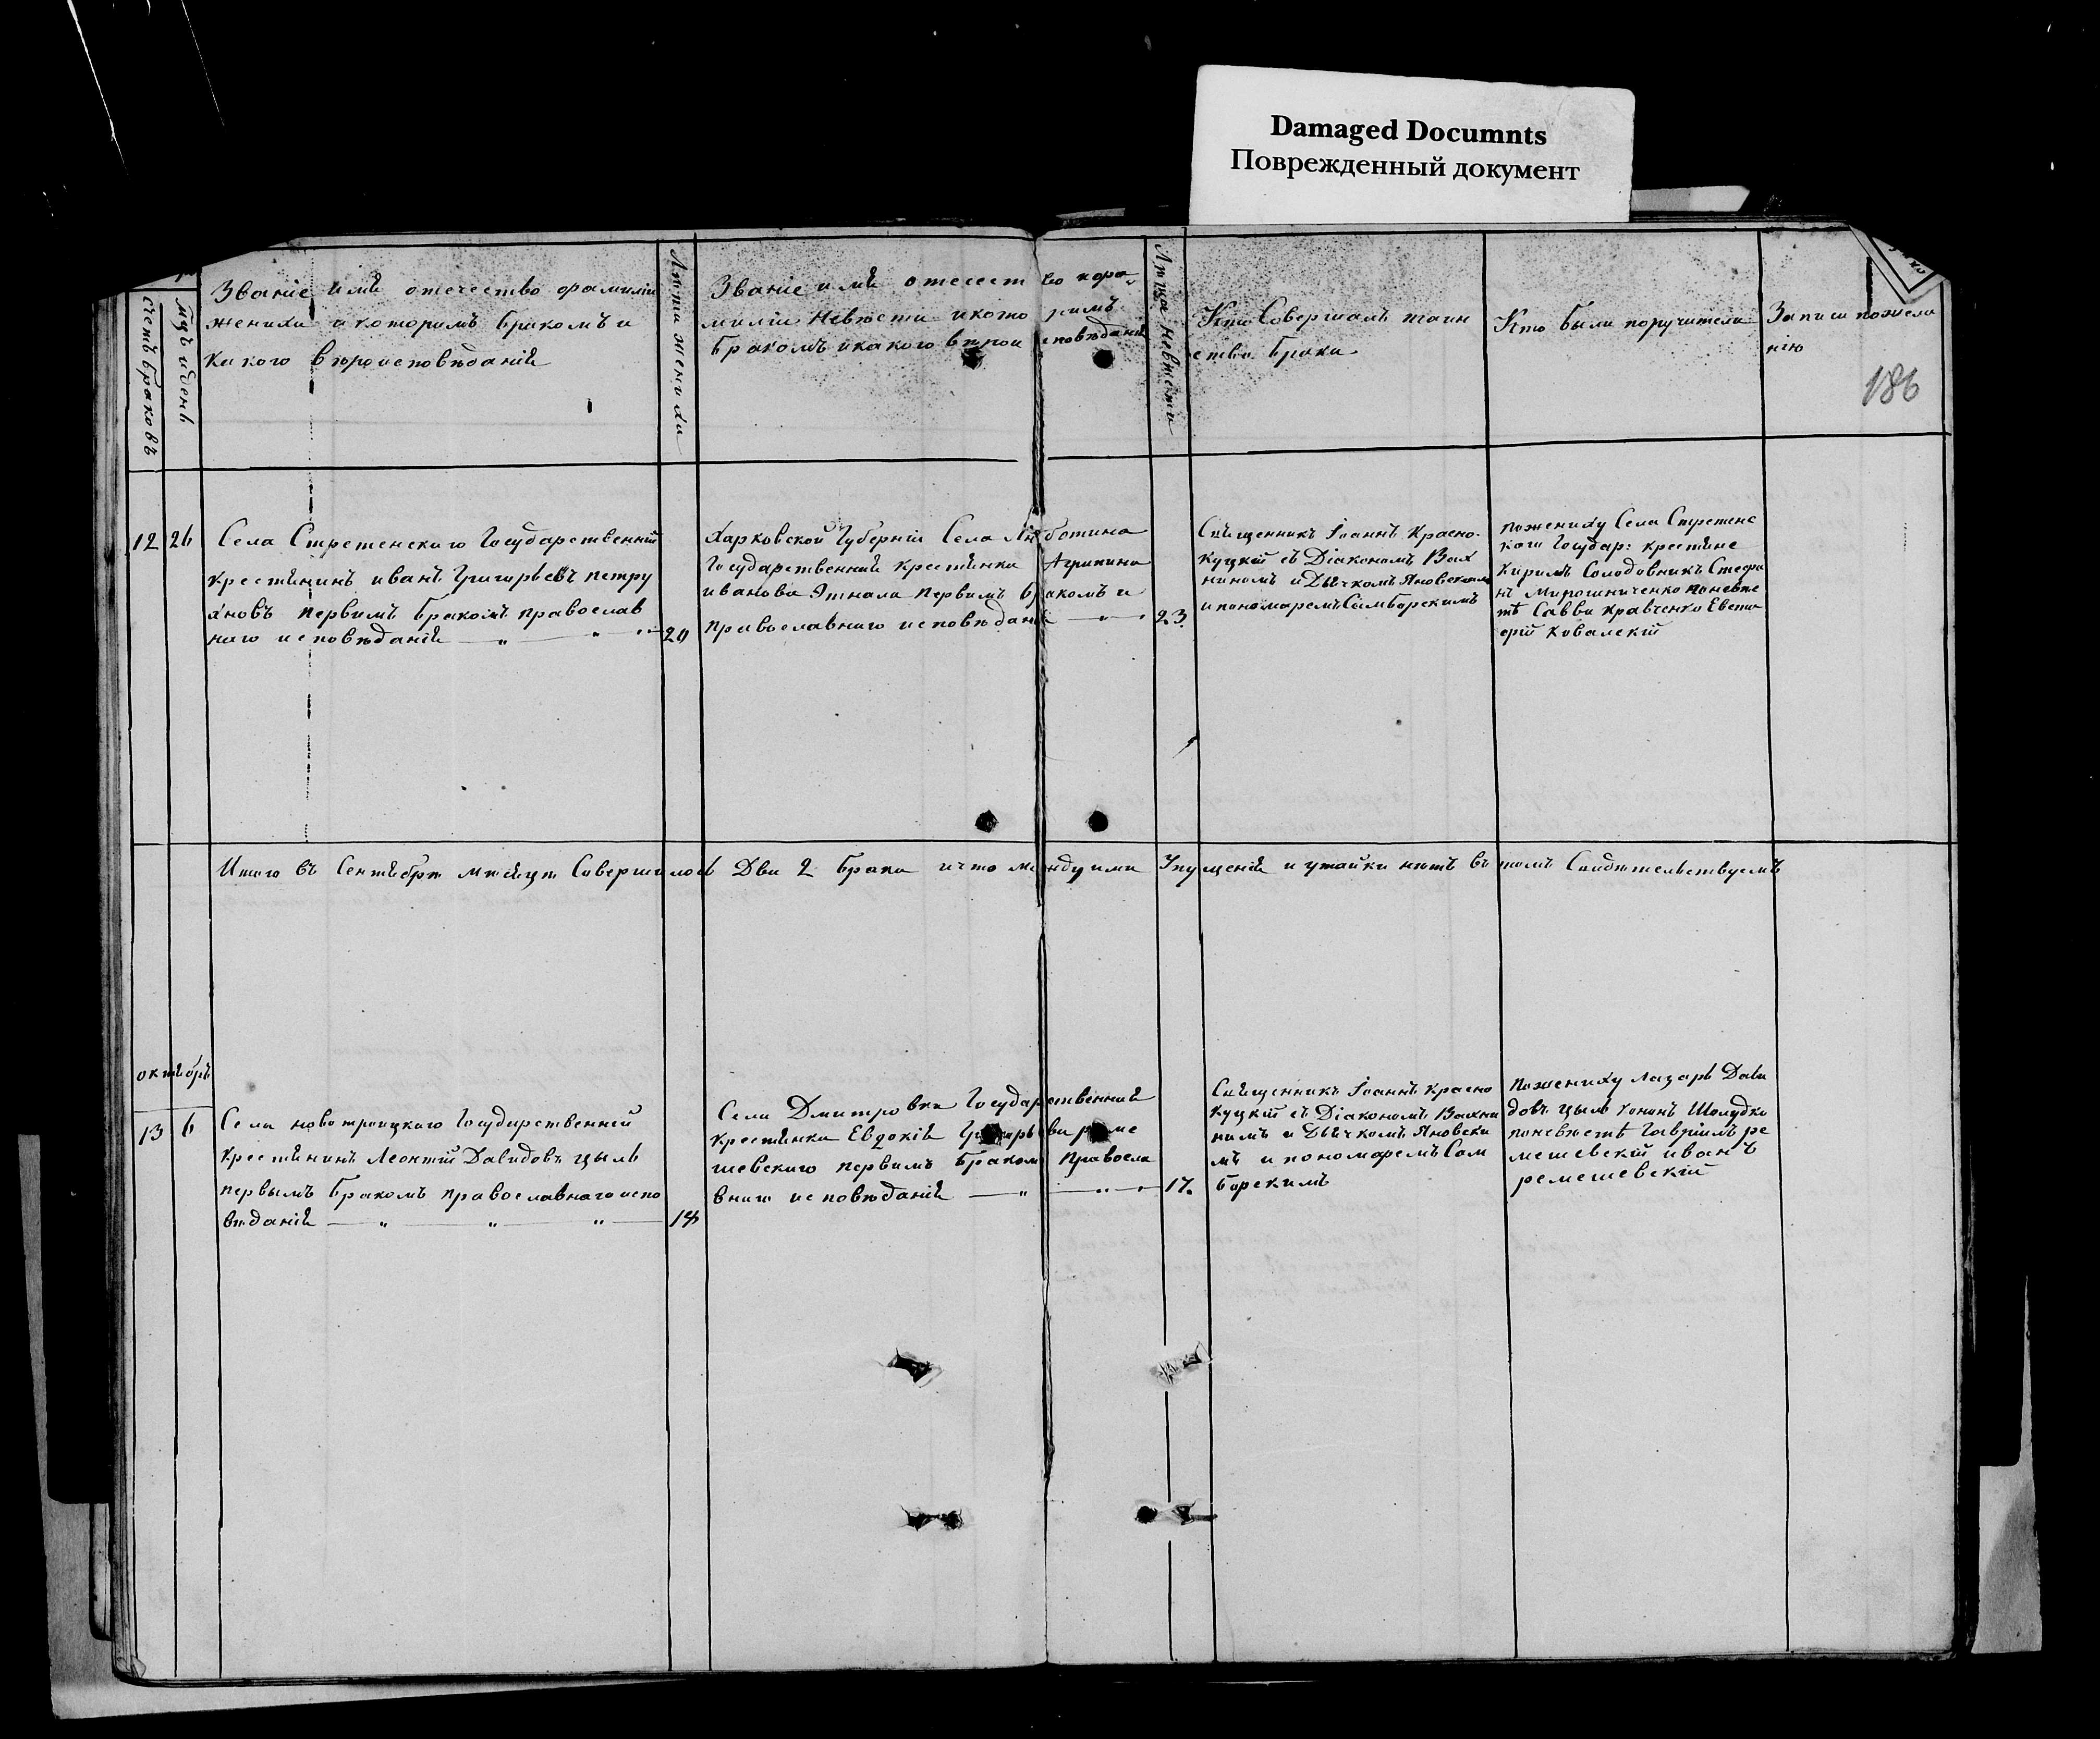 Damaged Documnts
Поврежденный документ
счетъ браковъ
мцъ и день
Званіе имя отечество фамилія
жениха и которимъ бракомъ и
какого вѣроисповѣданія
Лѣта жениха
Званіе имя отечество фа
милія невѣсти и кото римъ
бракомъ и какого вѣрои сповѣданія
Лѣта невѣсти
Кто совершалъ таин
ство брака
Кто были поручители
Записи пожела
нію
186
12 26
Села Стретенскаго Государственній
крестянинъ иванъ Григорьевъ петру
яновъ первимъ бракомъ православ
наго исповѣданія
20
Харковской Губерніи Села Лю ботина
Государственная крестянка Агрипина
иванова первимъ бракомъ и
православнаго исповѣданія
23.
Священникъ Іоаннъ Красно
куцкій съ Діакономъ Вах
ниномъ и Дьячкомъ Яновскимъ
и пономаремъ Самборскимъ
пожениху Села Стретенс
каго Государ: крестяне
Кирилъ Солодовникъ Стефа
нъ Мирошниченко поневѣс
тѣ Савва Кравченко Евста
фій Ковалскій
Итого въ Сентябрѣ мѣсяцѣ Совершилось Два 2 брака и что между ими Упущенія и утайки нѣтъ въ томъ Свидѣтельствуемъ
октябрь
13 6
Села новотроицкаго Государственній
крестянинъ Леонтій Давидовъ цыль
первымъ бракомъ православнаго испо
вѣданія
18
Села Дмитровки Государственная
крестянка Евдокія Григорьева реме
шевскаго первимъ бракомъ Правосла
внаго исповѣданія
17.
Священникъ Іоаннъ Красно
куцкій съ Діакономъ Вахни
нимъ и Дьячкомъ Яновски
мъ и пономаремъ Сам
борскимъ
пожениху Лазарь Дави
довъ цыль кононъ Шолудко
поневѣстѣ Гавріилъ ре
мешевскій иванъ
ремешевскій